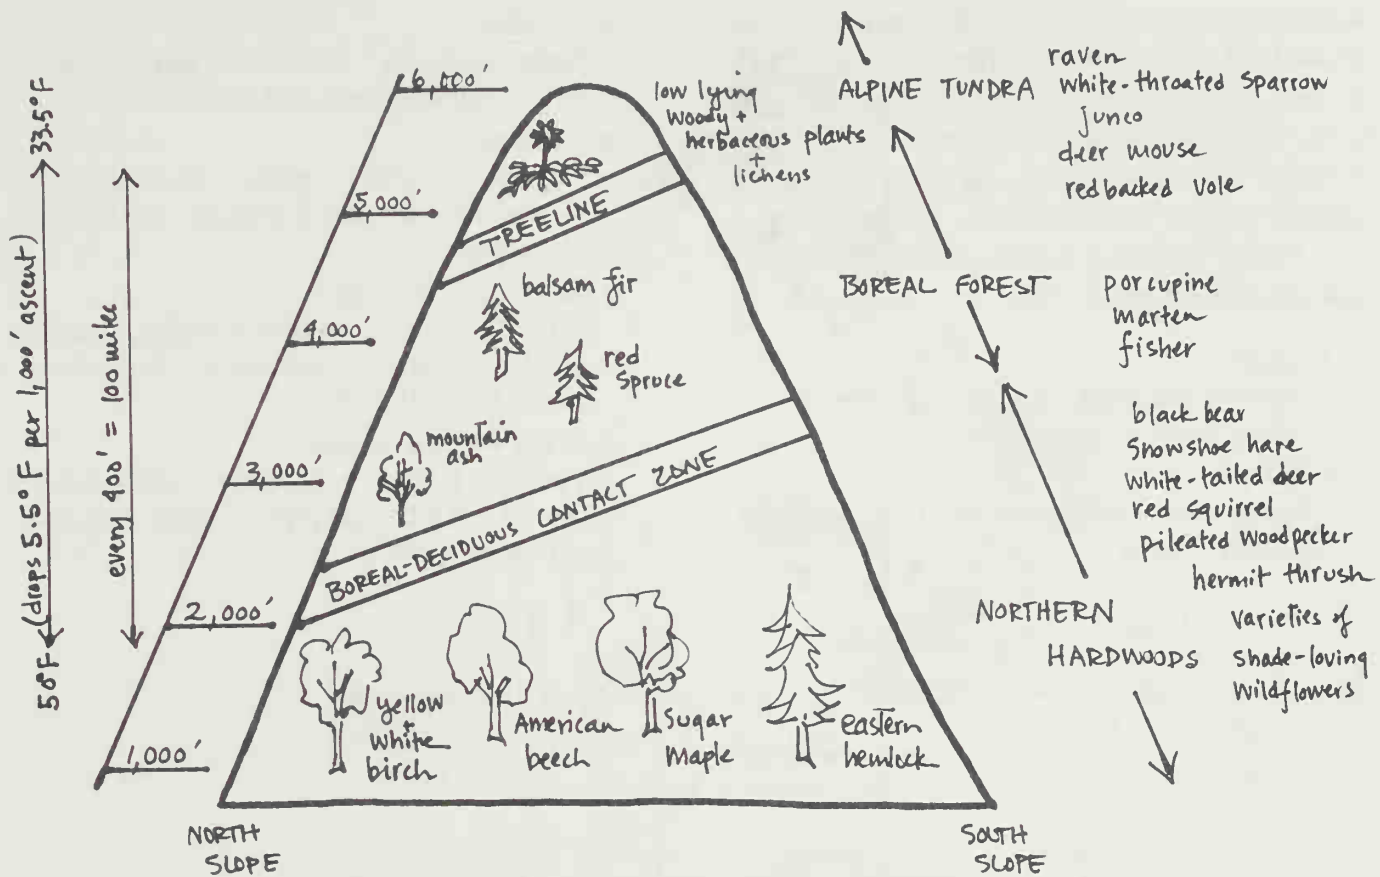 33.5°F
(drops 5.5°F per 1,000' ascent)
50°F
every 400' = 100 miles
6,000'
5,000'
4,000'
3,000'
2,000'
1,000'
low lying
woody +
herbaceous plants
+
lichens
TREELINE
balsam fir
red
spruce
mountain
ash
BOREAL-DECIDUOUS CONTACT ZONE
yellow
+
white
birch
American
beech
Sugar
Maple
eastern
hemlock
NORTH
SLOPE
SOUTH
SLOPE
ALPINE TUNDRA
raven
white-throated sparrow
junco
deer mouse
redbacked vole
BOREAL FOREST
porcupine
marten
fisher
black bear
snowshoe hare
white-tailed deer
red squirrel
pileated woodpecker
hermit thrush
NORTHERN
HARDWOODS
varieties of
shade-loving
wildflowers